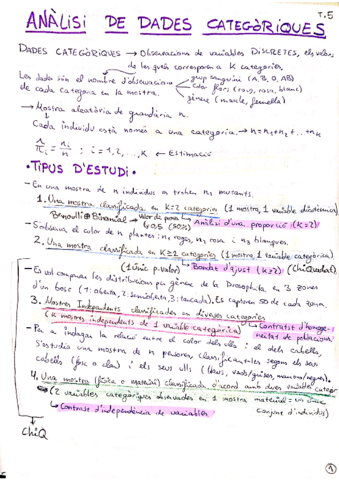 T.5
ANÀLISI DE DADES CATEGÒRIQUES
DADES CATEGÒRIQUES → Observacions de variables DISCRETES, els valors
de les quals correspon a K categories.
Les dades són el nombre d'observacions
de cada categoria en la mostra.
grup sanguini (A, B, O, AB)
color flors (roig, rosa, blanc)
gènere (mascle, femella)
→ Mostra aleatòria de grandària n.
Cada individu està només a una categoria. → n = n₁+n₂+...+nₖ
π̂ᵢ = nᵢ/n ; i = 1, 2, ..., K ← Estimació
• TIPUS D'ESTUDI •
- En una mostra de n individus a troben n₁ mutants.
1. Una mostra classificada en k=2 categories (1 mostra, 1 variable dicotòmica)
Bernoulli o Binomial → Anàlisi d'una proporció (K=2)
0.5 (50%)
- S'observa el color de n plantes: n₁ roges, n₂ rosa i n₃ blanques.
2. Una mostra classificada en K≥2 categories (1 mostra, 1 variable categòrica)
(1 únic p.valor) → Bondat d'ajust (k>2) (ChiQuadrat)
- Es vol comparar les distribucions per gènere de la Drosophila en 3 zones
d'un bosc (1: oberta, 2: semioberta, 3: tancada). Es capturen 50 de cada zona.
3. Mostres Independents classificades en diverses categories
(K mostres independents de 1 variable categòrica) → Contrast d'homoge-
neïtat de poblacions
- Per a indagar la relació entre el color dels ulls i el dels cabells,
s'estudia una mostra de n persones, classificant-les segons els seus
cabells (fosc o clar) i els seus ulls (blaus, verds/grisos, marrons/negres).
4. Una mostra (física o material) classificada d'acord amb dues variables categòr.
(2 variables categòriques observades en 1 mostra material = un únic
conjunt d'individus)
→ Contrast d'independència de variables
ChiQ
1